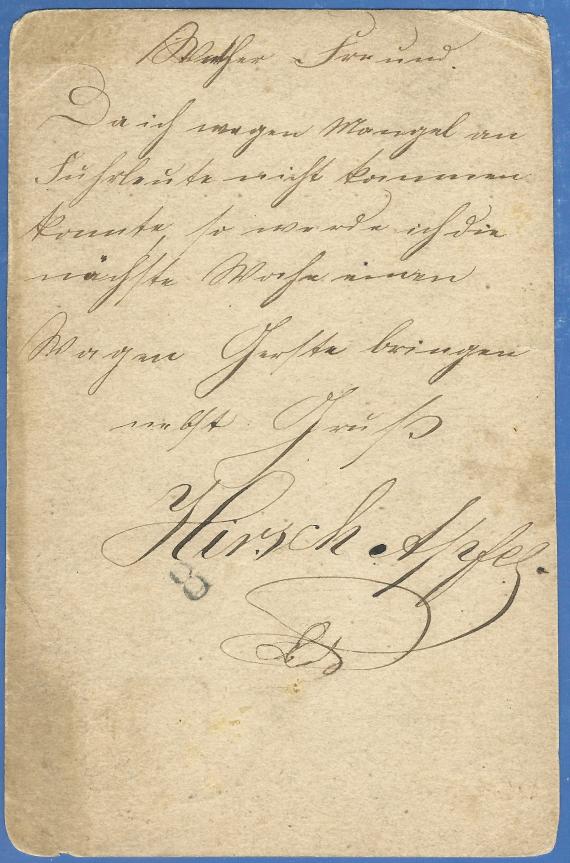 Werther Freund.
Da ich wegen Mangel an
Fuhrleute nicht kommen
konnte, so werde ich die
nächste Woche einen
Wagen Gerste bringen
nebst Gruß
Hirsch Apfel.
8